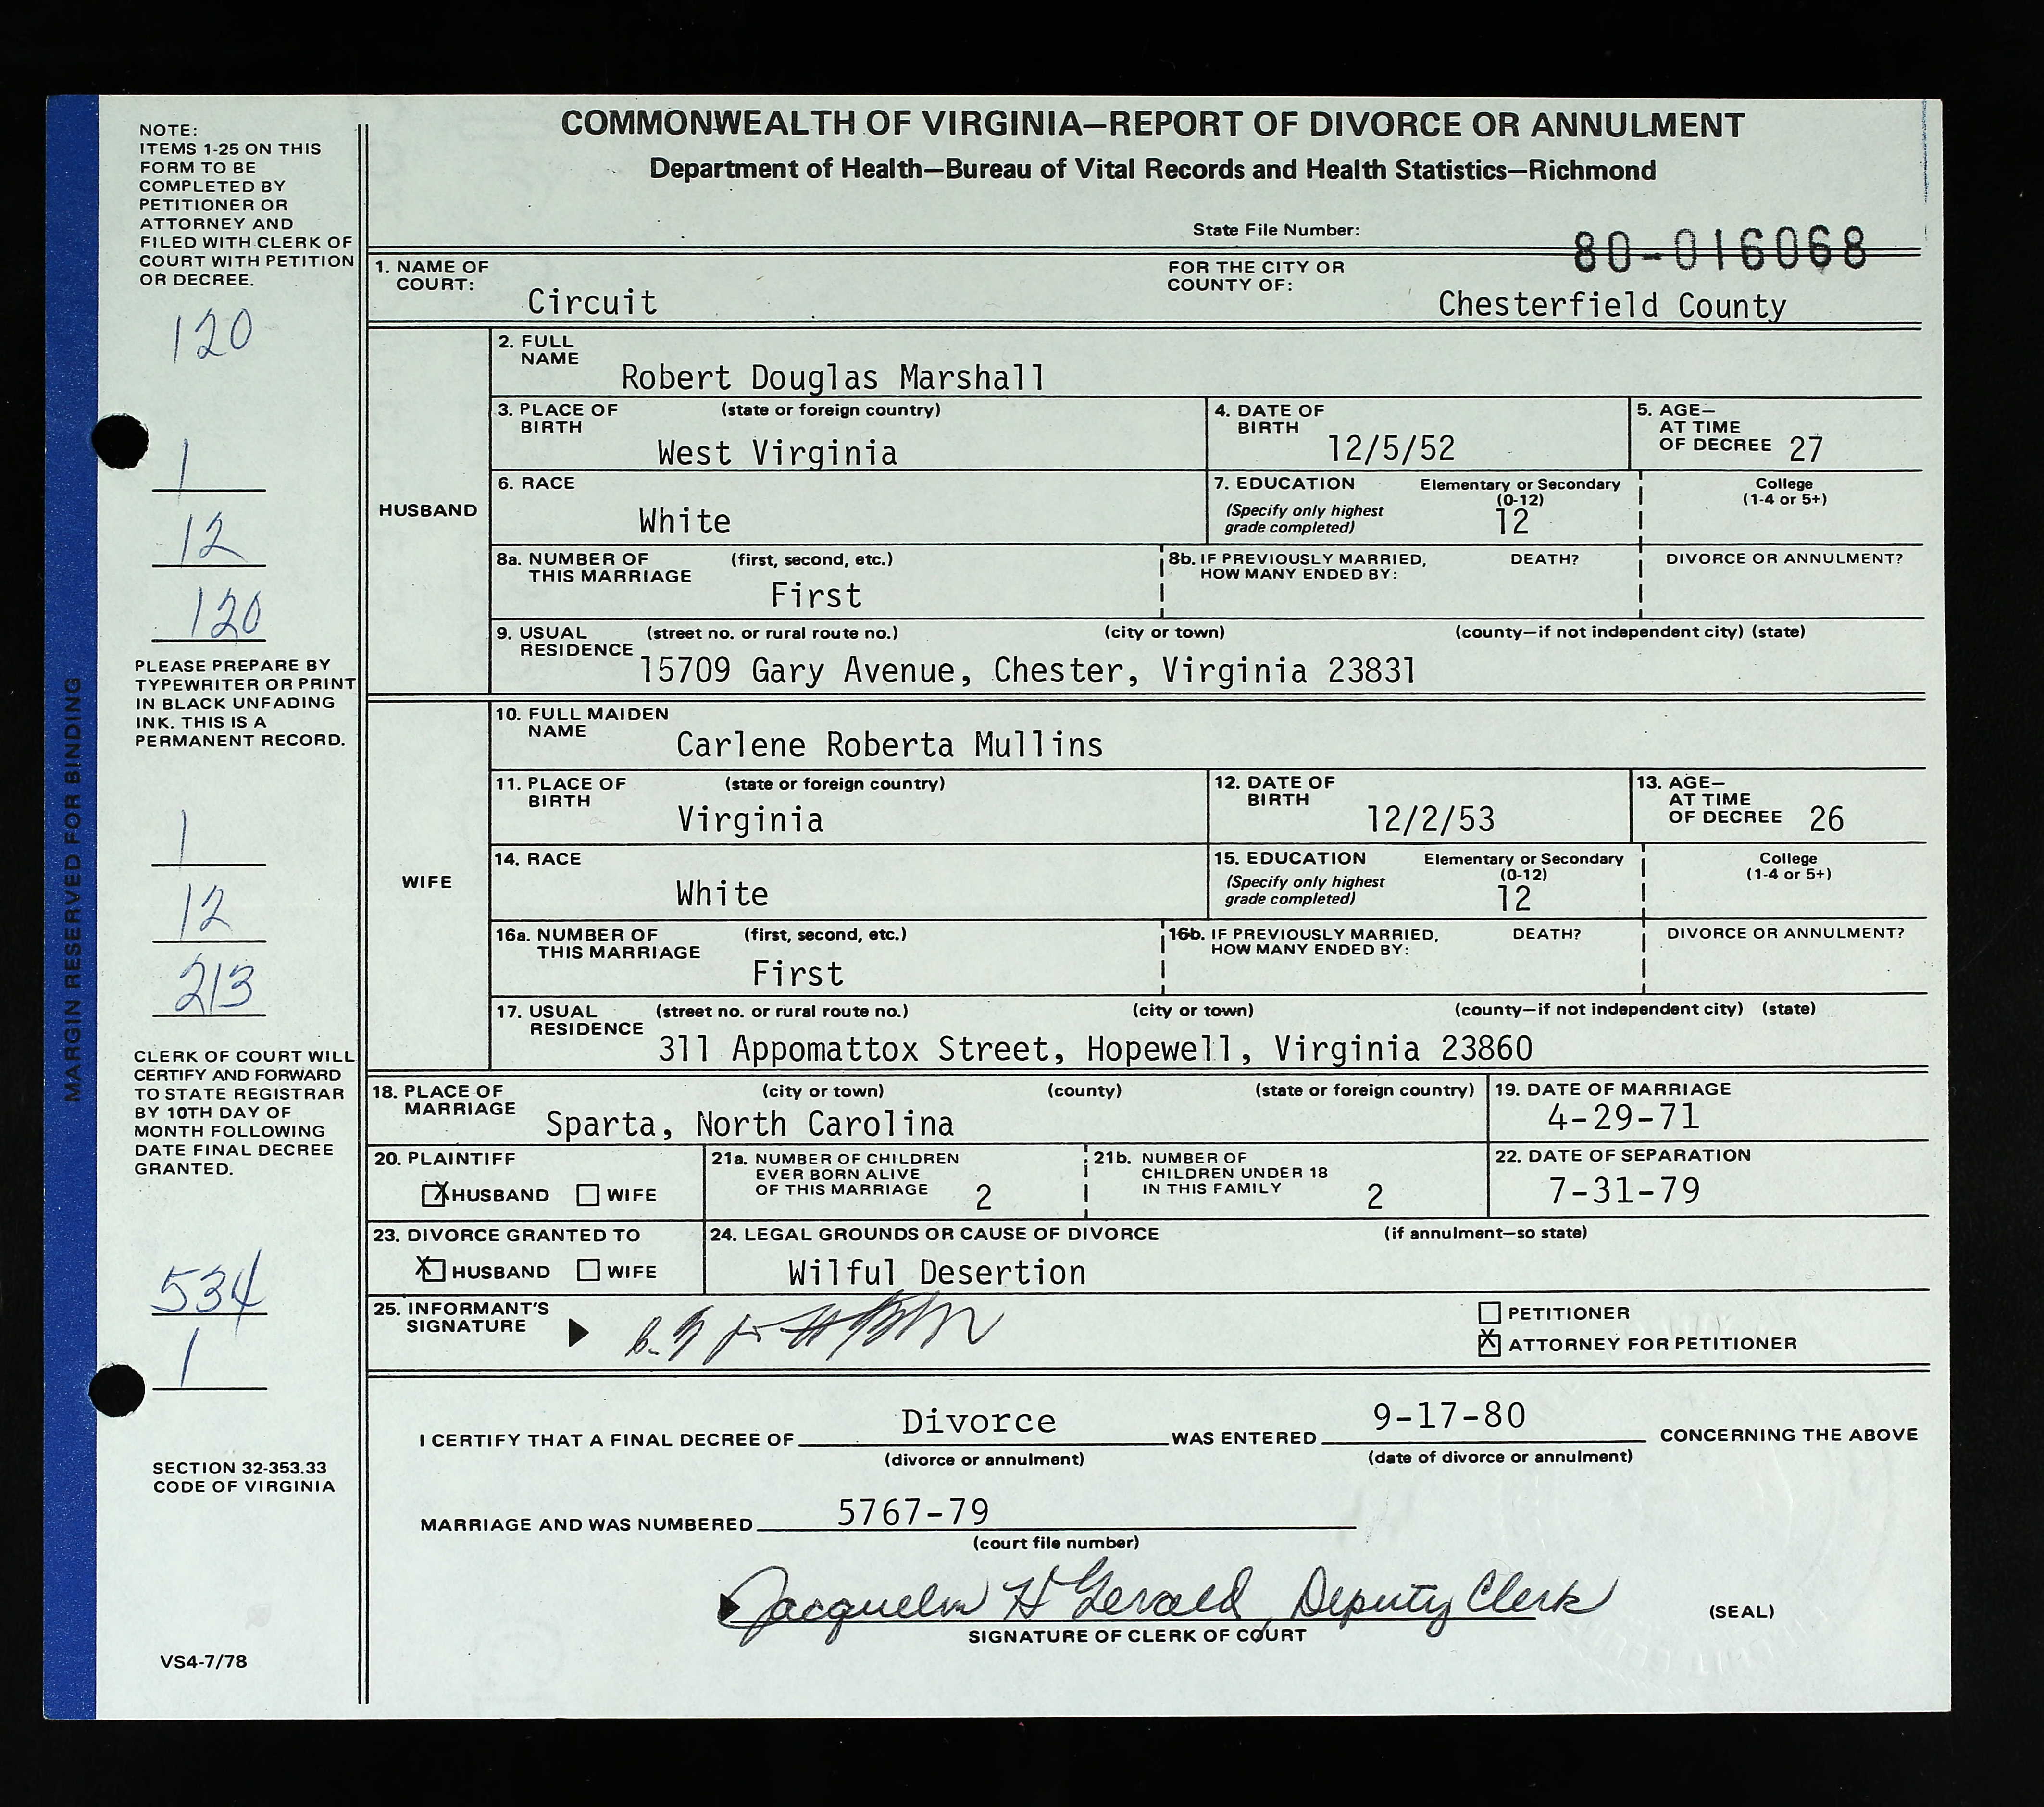 COMMONWEALTH OF VIRGINIA—REPORT OF DIVORCE OR ANNULMENT
Department of Health—Bureau of Vital Records and Health Statistics—Richmond
State File Number: 80-016068
NOTE:
ITEMS 1-25 ON THIS
FORM TO BE
COMPLETED BY
PETITIONER OR
ATTORNEY AND
FILED WITH CLERK OF
COURT WITH PETITION
OR DECREE.
120
1
12
120
PLEASE PREPARE BY
TYPEWRITER OR PRINT
IN BLACK UNFADING
INK. THIS IS A
PERMANENT RECORD.
1
12
213
CLERK OF COURT WILL
CERTIFY AND FORWARD
TO STATE REGISTRAR
BY 10TH DAY OF
MONTH FOLLOWING
DATE FINAL DECREE
GRANTED.
534
1
SECTION 32-353.33
CODE OF VIRGINIA
VS4-7/78
MARGIN RESERVED FOR BINDING
1. NAME OF COURT: Circuit FOR THE CITY OR COUNTY OF: Chesterfield County
HUSBAND
2. FULL NAME Robert Douglas Marshall
3. PLACE OF BIRTH (state or foreign country) West Virginia
4. DATE OF BIRTH 12/5/52
5. AGE— AT TIME OF DECREE 27
6. RACE White
7. EDUCATION (Specify only highest grade completed) Elementary or Secondary (0-12) 12 College (1-4 or 5+)
8a. NUMBER OF THIS MARRIAGE (first, second, etc.) First
8b. IF PREVIOUSLY MARRIED, HOW MANY ENDED BY: DEATH? DIVORCE OR ANNULMENT?
9. USUAL RESIDENCE (street no. or rural route no.) (city or town) (county—if not independent city) (state)
15709 Gary Avenue, Chester, Virginia 23831
WIFE
10. FULL MAIDEN NAME Carlene Roberta Mullins
11. PLACE OF BIRTH (state or foreign country) Virginia
12. DATE OF BIRTH 12/2/53
13. AGE— AT TIME OF DECREE 26
14. RACE White
15. EDUCATION (Specify only highest grade completed) Elementary or Secondary (0-12) 12 College (1-4 or 5+)
16a. NUMBER OF THIS MARRIAGE (first, second, etc.) First
16b. IF PREVIOUSLY MARRIED, HOW MANY ENDED BY: DEATH? DIVORCE OR ANNULMENT?
17. USUAL RESIDENCE (street no. or rural route no.) (city or town) (county—if not independent city) (state)
311 Appomattox Street, Hopewell, Virginia 23860
18. PLACE OF MARRIAGE (city or town) (county) (state or foreign country) Sparta, North Carolina
19. DATE OF MARRIAGE 4-29-71
20. PLAINTIFF X HUSBAND WIFE
21a. NUMBER OF CHILDREN EVER BORN ALIVE OF THIS MARRIAGE 2
21b. NUMBER OF CHILDREN UNDER 18 IN THIS FAMILY 2
22. DATE OF SEPARATION 7-31-79
23. DIVORCE GRANTED TO X HUSBAND WIFE
24. LEGAL GROUNDS OR CAUSE OF DIVORCE (if annulment—so state) Wilful Desertion
25. INFORMANT'S SIGNATURE
PETITIONER
X ATTORNEY FOR PETITIONER
I CERTIFY THAT A FINAL DECREE OF Divorce WAS ENTERED 9-17-80 CONCERNING THE ABOVE
(divorce or annulment) (date of divorce or annulment)
MARRIAGE AND WAS NUMBERED 5767-79
(court file number)
Jacquelin H Gerald, Deputy Clerk
SIGNATURE OF CLERK OF COURT
(SEAL)